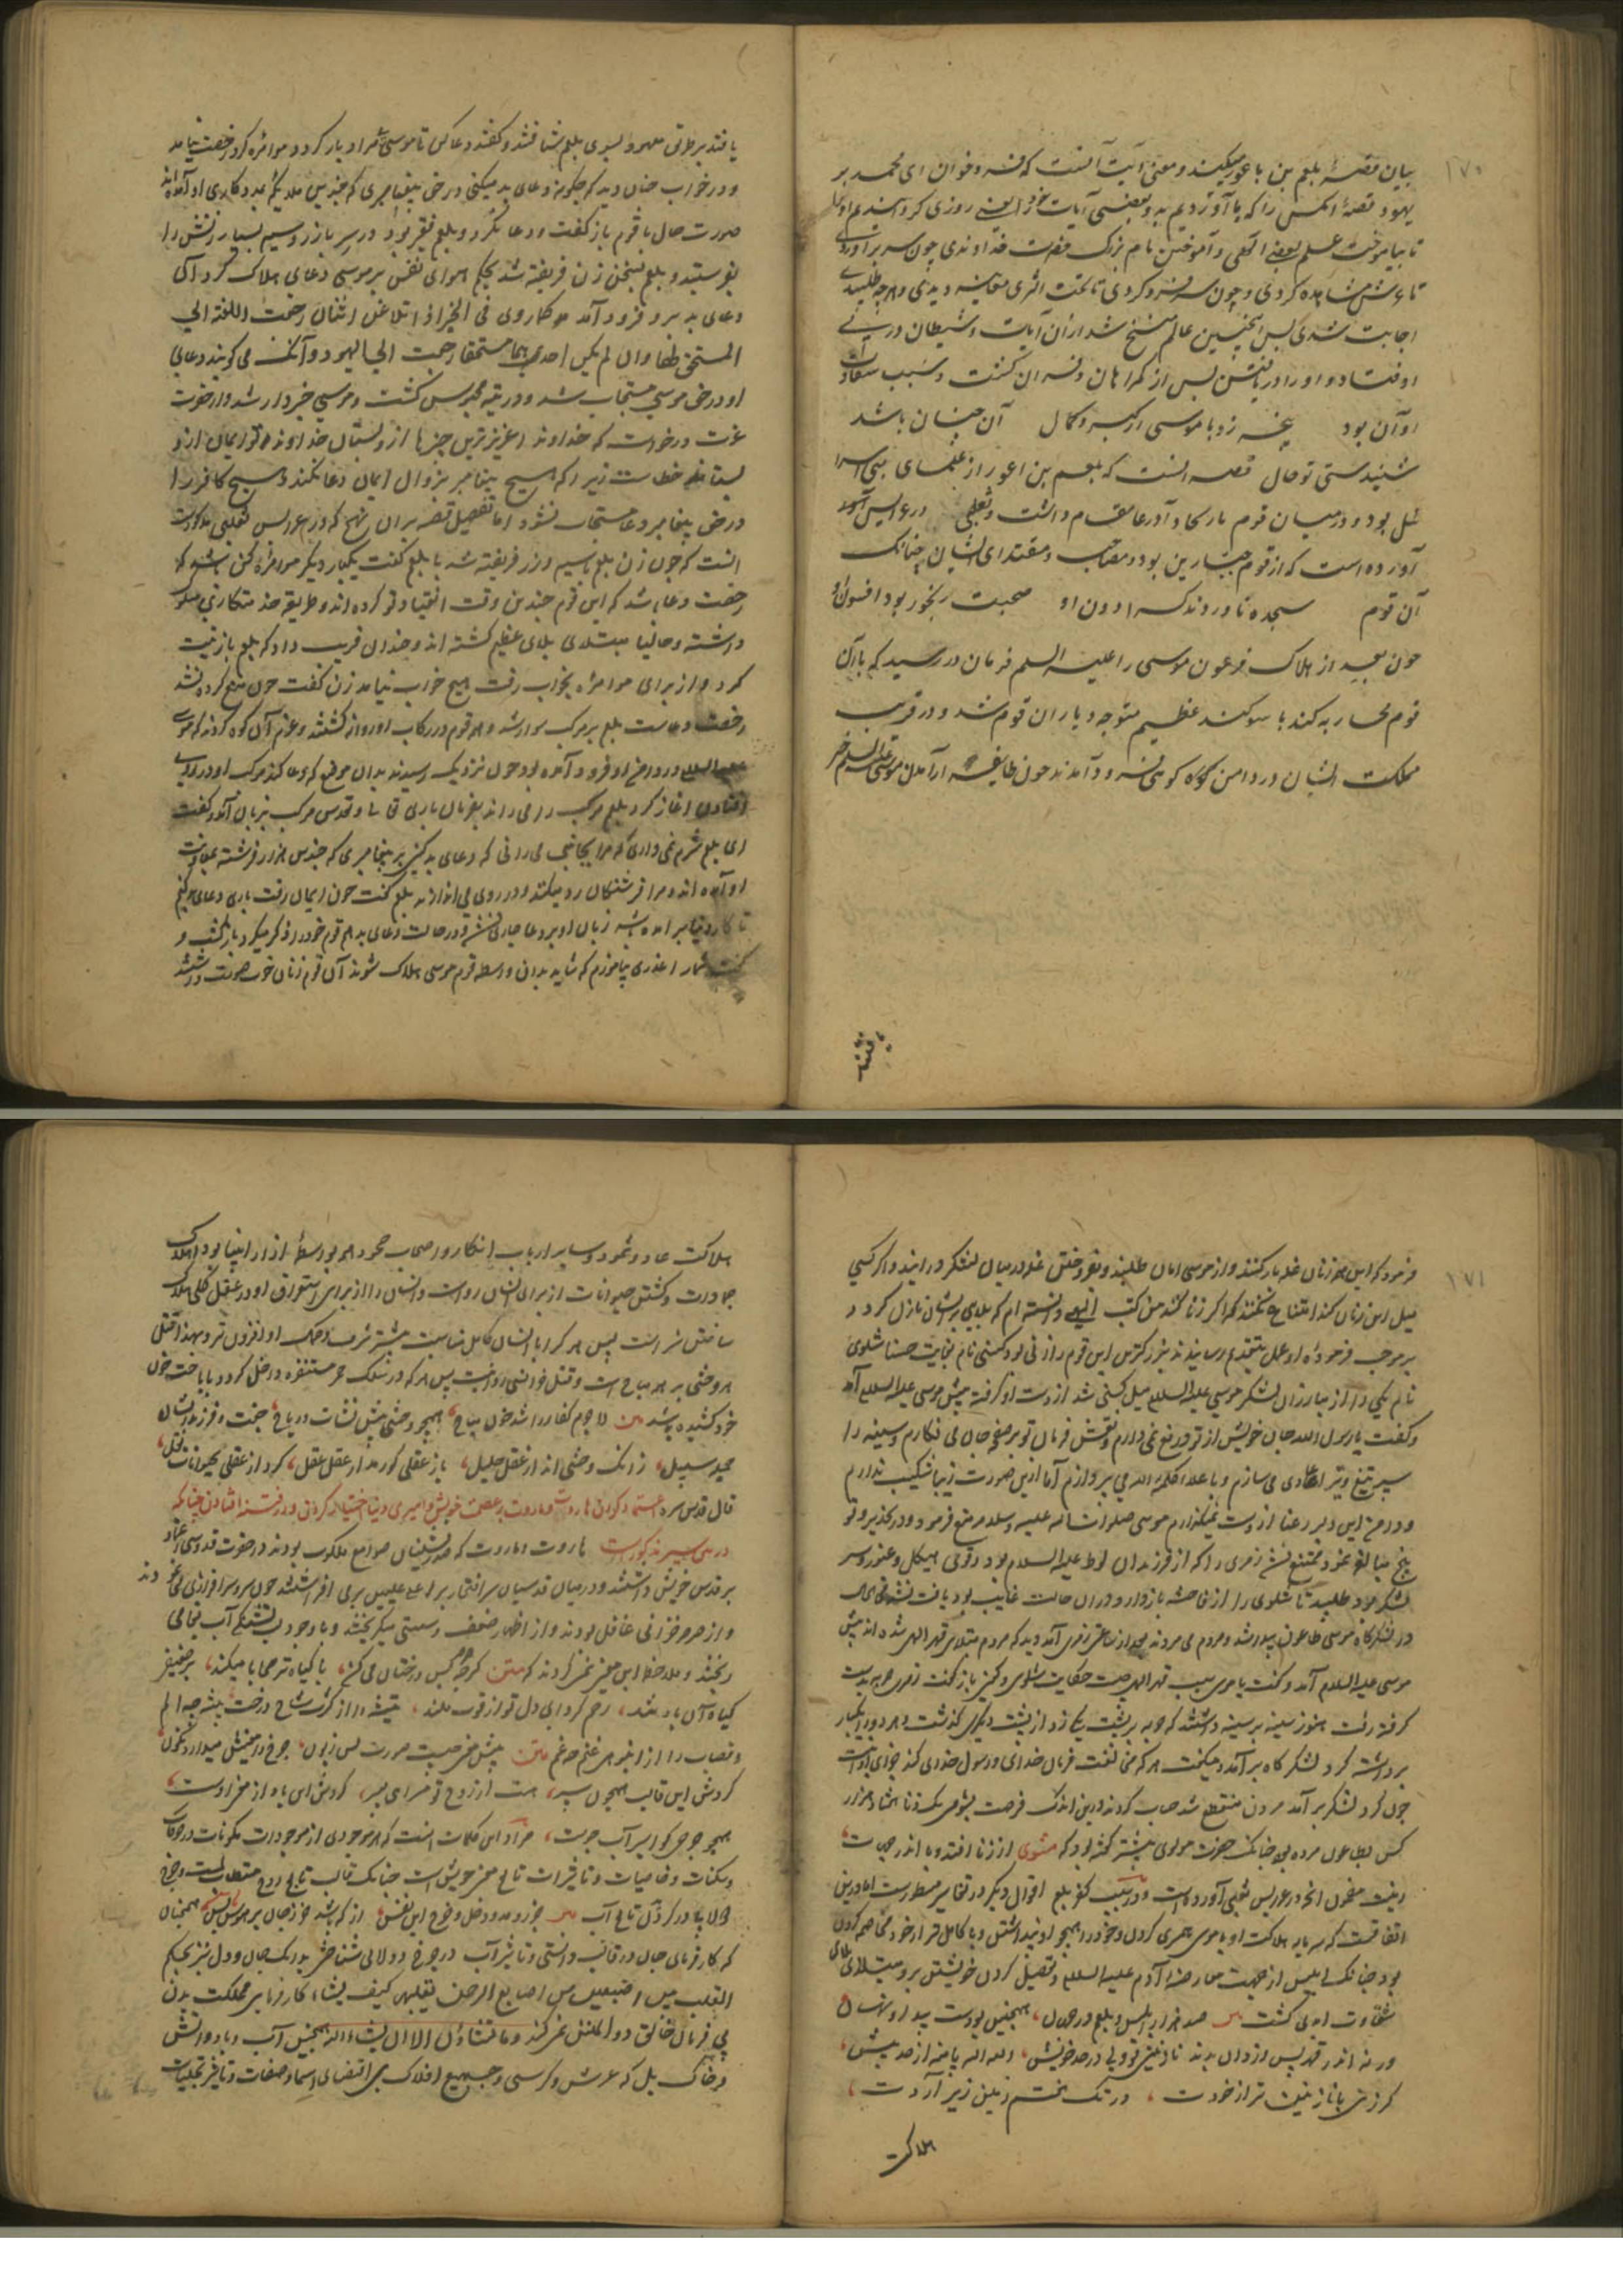 ۱۷۰
بیان قصهٔ بلعم بن باعور میکند و معنی آیت آنست که فرو خوان ای محمد بر
یهود قصهٔ انکس را که ما آوردیم بدو بعضی آیات خود را یعنی روزی کردانیدیم او را
تا بیاموخت علم بعضی و آموختن نام بزرک حضرت خداوندی چون سر برآوردی
تا عرش مشاهده کردی و چون سر فرو کردی تا تحت اثری معاینه دیدی و هرچه طلبیدی
اجابت شدی پس اینچنین عالم منسخ شد از آن آیات و شیطان در پی
او فتاد و او را دریافتش پس از کمراهان و خسران کشت و سبب شقاوت
او آن بود پنجه زد با موسی از کبر و کمال آن چنان باشد
شنیدستی تو حال قصه انست که بلعم بن اعور از علمای بنی اسرا
ئیل بود و در میان قوم بارکاه و آدر عامقام داشت و ثعلبی در عرایس
آورده است که از قوم جبارین بود و مصاحب و مقتدای ایشان چنانک
آن قوم سجده ناوردند کسرا دون او صحبت رنجور بود افسون او
چون بعد از هلاک فرعون موسی را علیه السلم فرمان در رسید که با آن
قوم محاربه کند با سوکند عظیم متوجه دیار ان قوم شد و در قریب
مملکت ایشان در دامن کوه کوهی فرود آمدند چون طایفه از آمدن موسی علیه السلم خبر
یافتند
یافتند بطریق معهود بسوی بلعم شتافتند و کفتند دعا کن تا موسی مراد باز کردد موامره کرد رخصت نیامد
و در خواب چنان دید که چکونه دعای بد میکنی در حق پیغامبری که چندین ملایکه بمددکاری او آمده اند
صورت حال با قوم باز کفت و دعا نکرد و بلعم فقیر بود در سر بازر و سیم بسیار زنش را
بفرستید و بلعم بسخن زن فریفته شد بحکم هوای نفس بر موسی دعای هلاک کرد آن
دعای بد برو فرود آمد کما روی فی الخبر اذا تلاعن اثنان رجعت اللعنة الی
المستحق لها وان لم یکن احدهما مستحقا رجعت الی الیهود و آنک می کویند دعای
او در حق موسی مستجاب شد و در تیه محبوس کشت و موسی خبردار شد و از حضرت
عزت درخواست که خداوندا عزیزترین چیزها ازو بستان خداوند نور ایمان ازو
بستاند خطاست زیرا که هیچ پیغامبر بزوال ایمان دعا نکند و هیچ کافر را
در حق پیغامبر دعا مستجاب نشود اما تفصیل قصه بران نهج که در عرایس ثعلبی مذکورست
انست که چون زن بلعم بسیم و زر فریفته شد با بلعم کفت یکبار دیکر موامره کن باشد که
رخصت دعا باشد که این قوم چندین وقت انقیاد تو کرده اند و طریقه خدمتکاری مسلوک
داشته و حالیا مبتلای بلای عظیم کشته اند و چندان فریب داد که بلعم باز نیت
کرد و از برای موامره بخواب رفت هیچ خواب نیامد زن کفت چون منع کرده نشد
رخصت دعاست بلعم بر مرکب سوار شد و هم قوم در رکاب او روانه کشتند و عزم آن کوه کردند که موسی
علیه السلام در دامن او فرود آمده بود چون نزدیک رسیدند بدان موضع که دعا کند مرکب او در روی
افتادن اغاز کرد بلعم مرکب را می راند بفرمان باری تعالی و تقدس مرکب بزبان آمد و کفت
ای بلعم شرم نمی داری که مرا بجانبی می رانی که دعای بد کنی بر پیغامبری که چندین هزار فرشته بمعاونت
او آمده اند و مرا فرشتکان رد میکنند و در روی می اندازند بلعم کفت چون ایمان رفت باری دعای بد کنم
تا کار دنیا بر آمده باشد زبان او بر دعا جاری نشد و در حالت دعای بد هم قوم خود را ذکر میکرد بازکشت و
کفت شما را عذری بیاموزم که شاید بدان واسطه قوم موسی هلاک شوند آن قوم زنان خوب صورت داشتند
۱۷۱
فرمود که این همه زنان غلو بار کنند و از موسی امان طلبند و بفروختن غله در میان لشکر درایند و اکر کسی
میل این زنان کند امتناع نکنند که اکر زنا کنند من کتب الهی دانسته ام که بلای بر ایشان نازل کردد
بر موجب فرموده او عمل بتقدیم رسانیدند بزرکترین این قوم را زنی بود کستی نام بغایت حسنا شلوی
نام یکی را از مبارزان لشکر موسی علیه السلام میل کستی شد از دست او کرفته پیش موسی علیه السلام آمد
و کفت یا رسول الله جان خویش از تو دریغ نمی دارم و نقش فرمان تو بر صفحه جان می نکارم و سینه را
سپر تیغ و تیر اعادی می سازم و باعلاء کلمة الله می پردازم اما ازین صورت زیبا شکیب ندارم
و دامن این دلبر رعنا از دست نمیکذارم موسی صلوات الله علیه و سلم منع فرمود و در کذیر و تو
بیخ مبالغه نمود ممتنع نشد زمری را که از فرزندان لوط علیه السلام بود و قوی هیکل و غیور و سر
لشکر بود طلبید تا شلوی را از فاحشه بازدارد و در ان حالت غایب بود یافت نشد فی الحال
در لشکرکاه موسی طاعون پیدا شد و مردم می مردند بعد از ساعتی زمری آمد دید که مردم مبتلای قهر الهی شده اند پیش
موسی علیه السلام آمد و کفت یا موسی سبب قهر الهی چیست حکایت شلوی و کستی باز کفت زمری حربه بدست
کرفته رفت هنوز سینه بر سینه داشتند که حربه بر پشت یکی زد از پشت دیکری کذشت و هر دو را بیکبار
برداشته کرد لشکرکاه برآمد و میکفت هر که مخالفت فرمان خدای و رسول خدای کند جزای او اینست
چون کرد لشکر برآمد مردن منقطع شد حساب کردند درین اندک فرصت بشومی یک زنا هفتاد هزار
کس بطاعون مرده بود چنانک حضرت مولوی پیشتر کفته بود که مثنوی از زنا افتد وبا اندر جهات
اینست مضمون انچه در عرایس ثعلبی آورده است و در سبب کفر بلعم اقوال دیکر در تفاسیر مسطورست اما درین
اتفاقست که سرمایه هلاکت او با موسی همسری کردن و خود را همچو او پنداشتن و با کامل قرار خود مخاصمه کردن
بود چنانک ابلیس از جهت معارضه آدم علیه السلام و تفضیل کردن خویشتن برو مبتلای
شقاوت ابدی کشت صد هزار ابلیس و بلعم در جهان، همچنین بودست پیدا و نهان
کر زنی با نازنین تر از خودت، در تک هفتم زمین زیر آردت،
هلاکت
هلاکت عاد و ثمود و سایر ارباب انکار و اصحاب جحود هم بواسطهٔ ازار انبیا بود هلاک
جمادات و کشتن حیوانات از برای انسان رواست و انسان را از برای استغراق او در عقل کلی هلاک
ساختن سزاست پس هر کرا با انسان کامل مناسبت بیشتر شرف او افزون تر و لهذا قتل
هر وحشی بر هر مباح است و قتل خوانسی روا نیست پس هر که در سلک حمر مستنفره داخل کردد با باحت خون
خود کشیده باشد متن لاجرم کفار را شد خون مباح، همچو وحشی پیش نشاب و رماح، جفت و فرزندانشان
جمله سبیل، زانک وحشی اند از عقل جلیل، باز عقلی کو رمد از عقل عقل، کرد از عقلی بحیوانات نقل،
قال قدس سره اعتماد کردن هاروت و ماروت بر عصمت خویش و امیری دنیا اختیار کردن و در فتنه افتادن چنانکه
در تفسیر مذکورست هاروت و ماروت که صدرنشینان صوامع ملکوت بودند در حضرت قدوسی اعتماد
بر قدس خویش داشتند و در میان قدسیان سر افتخار بر اعلی علیین بر می افراشتند
و از صرصر قهر ربانی غافل بودند و از اظهار ضعف و سستی میکریختند و با وجود
ریختند و ملاحظه این معنی نمی کردند که متن کرچه صرصر بس درختان می کند، با کیاه تر محابا میکند، بر ضعیفی
کیاه آن باد تند، رحم کرد ای دل تو از قوت ملند، تیشه را از کثرت شاخ درخت بیشه چه الم
و قصاب را از انبوهی غنم چه غم متن پیش معنی چیست صورت بس زبون، چرخ را معنیش میدارد نکون،
کردش این قالب همچون سپر، هست از روح مستر ای پسر، کردش این باد از معنی اوست،
همچو چرخی کو اسیر آب جوست، مراد این کلمات انست که هر موجودی از موجودات مکونات در حرکات
و سکنات و خاصیات و تاثیرات تابع معنی خویش است چنانک قالب تابع روح متعلقست و چرخ
دولاب در کردش تابع آب متن جزر و مد و دخل و خرج این نفس، از که باشد جز ز جان پر هوس همچنان
که کارفرمای جان در قالب دانستی و تاثیر آب در چرخ دولابی شناختی بدانک جان و دل نیز بحکم
القلب بین اصبعین من اصابع الرحمن یقلبهن کیف یشاء کارفرمایی مملکت بدن
بی فرمان خالق ذو المنن نمی کند و ما تشاؤن الا ان یشاء الله همچنین آب و باد و آتش
و خاک بل که عرش و کرسی و جمیع افلاک بی اقتضای اسما و صفات و تاثیر تجلیات